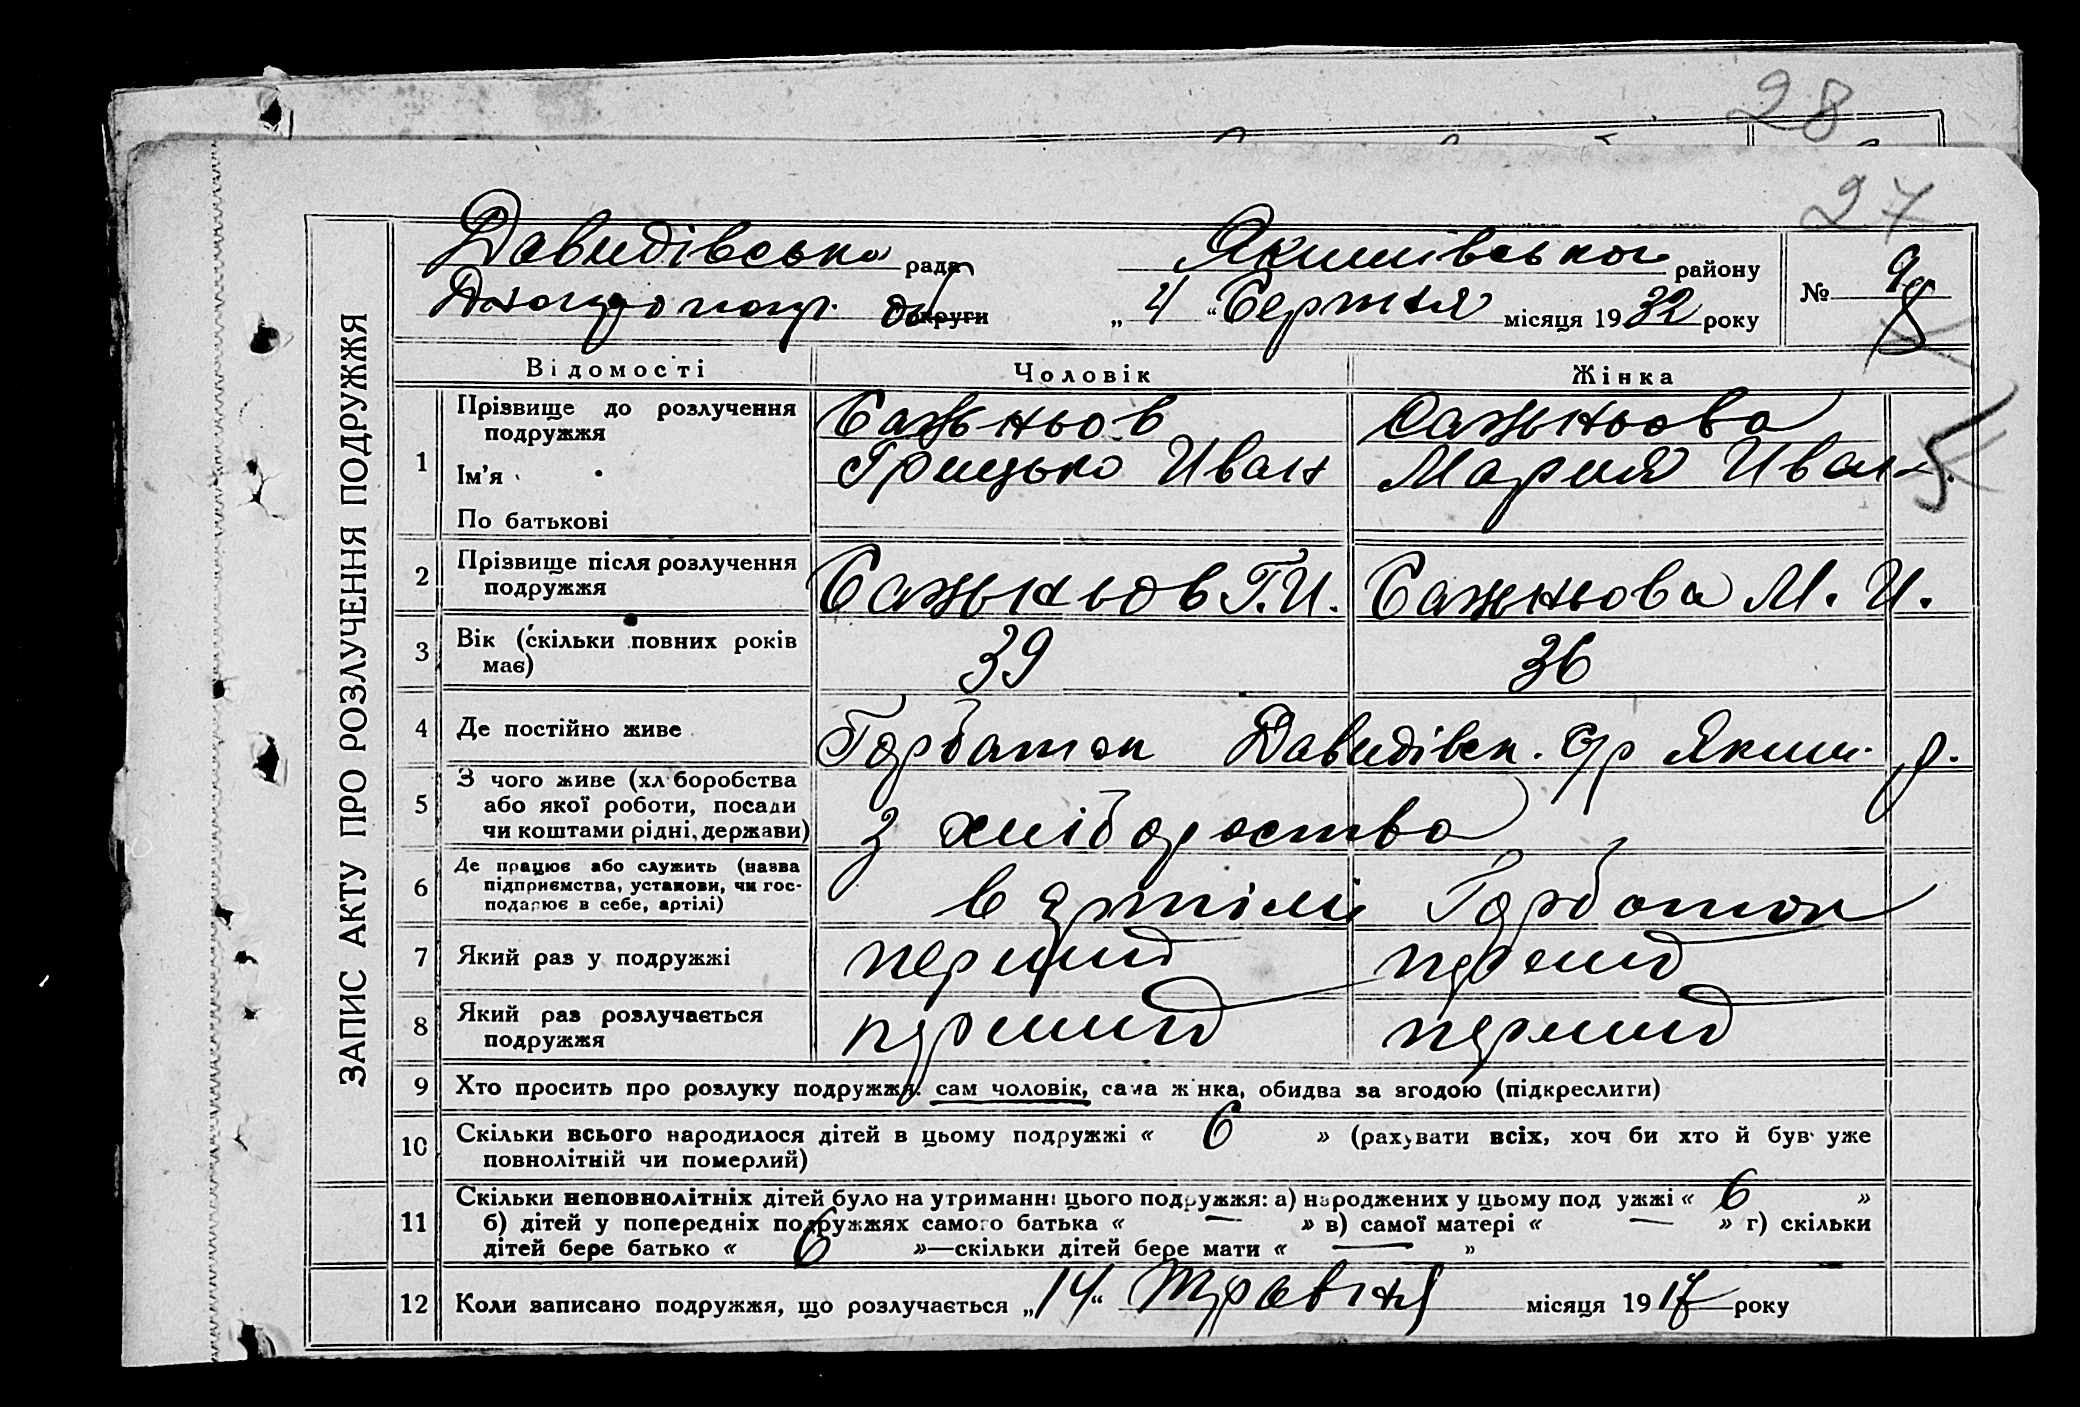 28
27
Давидівська рада Якимівського району № 98
Дніпропетр. обл округи „ 4 “ Березня місяця 1932 року
Відомості Чоловік Жінка
ЗАПИС АКТУ ПРО РОЗЛУЧЕННЯ ПОДРУЖЖЯ
1 Прізвище до розлучення Сажньов Сажньова
подружжя
Ім'я Грицько Иван Мария Иван.
По батькові
5
2 Прізвище після розлучення Сажньов Г.И. Сажньова М. И.
подружжя
3 Вік (скільки повних років 39 36
має)
4 Де постійно живе Горбаток Давидівск. С/р Яким. р.
5 З чого живе (хл боробства
або якої роботи, посади з хлібороства
чи коштами рідні, держави)
6 Де працює або служить (назва
підприємства, установи, чи гос- в артілі Горбаток
подарює в себе, артілі)
7 Який раз у подружжі перший перший
8 Який раз розлучається перший перший
подружжя
9 Хто просить про розлуку подружжя: сам чоловік, сама ж нка, обидва за згодою (підкреслити)
10 Скільки всього народилося дітей в цьому подружжі « 6 » (рахувати всіх, хоч би хто й був уже
повнолітній чи померлий)
11 Скільки неповнолітніх дітей було на утриманні цього подружжя: а) народжених у цьому под ужжі « 6 »
б) дітей у попередніх подружжях самого батька « — » в) самої матері « — » г) скільки
дітей бере батько « 6 »—скільки дітей бере мати « — »
12 Коли записано подружжя, що розлучається „14“ Травня місяця 1917 року